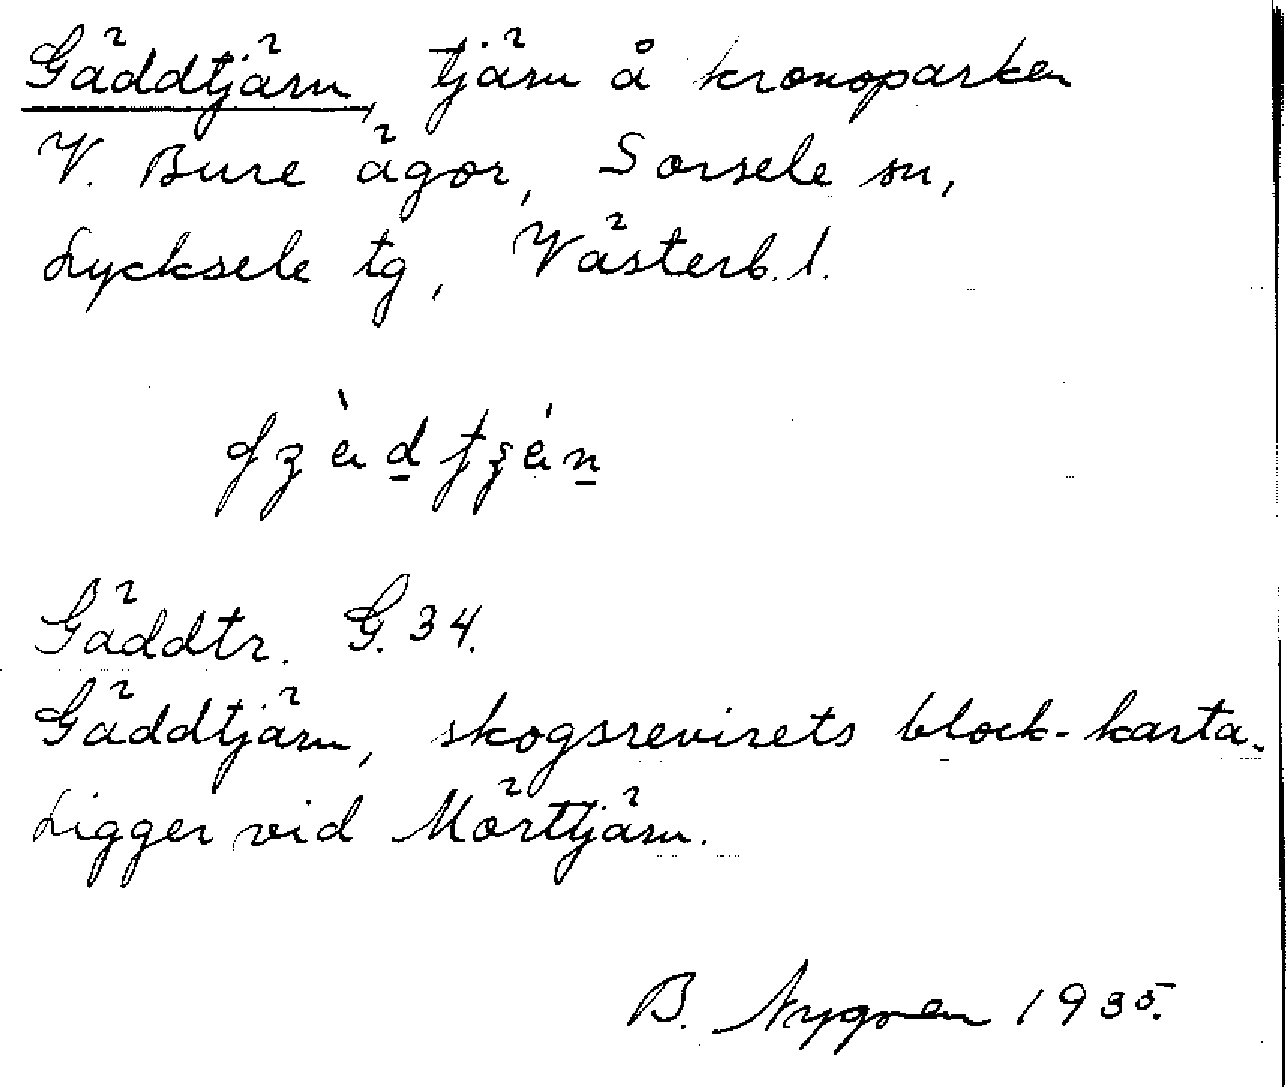 Gäddtjärn, tjärn å kronoparken
V. Bure ägor, Sorsele sn,
Lycksele tg, Västerb. l.
Gäddtr. G. 34.
Gäddtjärn, skogsrevirets block-karta.
Ligger vid Mörttjärn.
B. Nygren 1935.